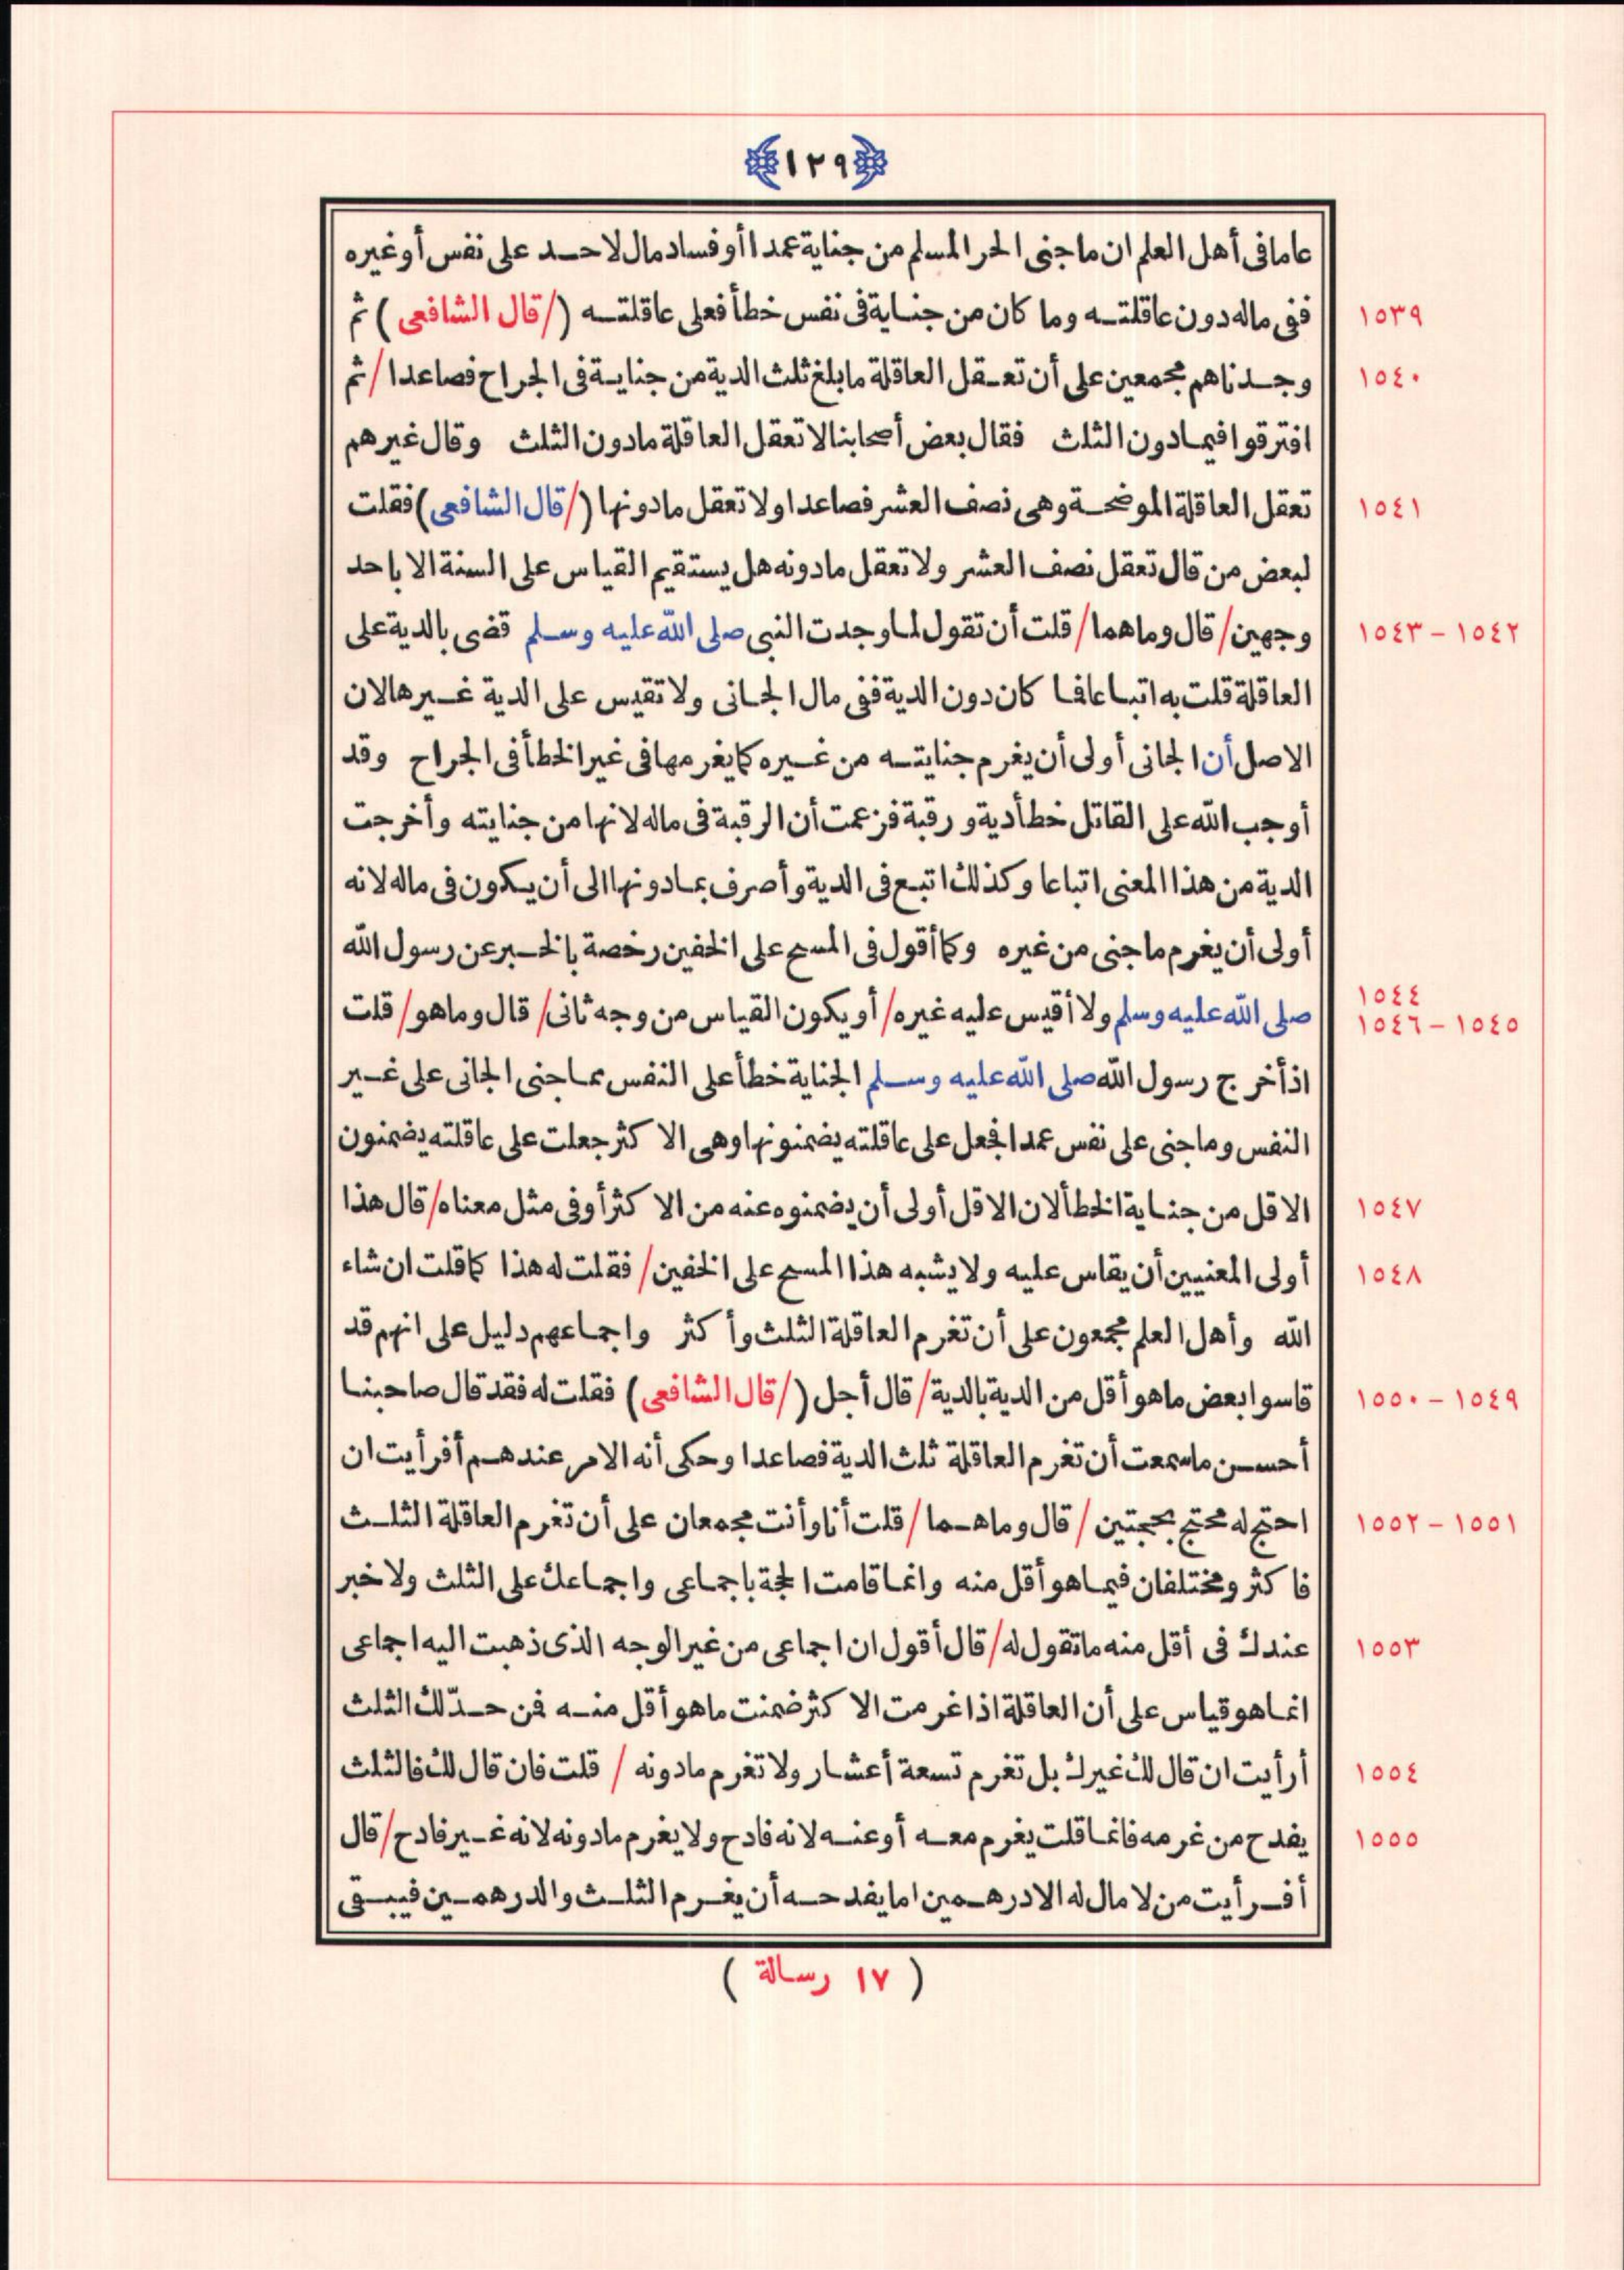 ﴿١٢٩﴾
عاما فى أهل العلم ان ما جنى الحر المسلم من جناية عمدا أو فساد مال لاحد على نفس أو غيره
١٥٣٩ ففى ماله دون عاقلته وما كان من جناية فى نفس خطأ فعلى عاقلته (/قال الشافعى) ثم
١٥٤٠ وجدناهم مجمعين على أن تعقل العاقلة ما بلغ ثلث الدية من جناية فى الجراح فصاعدا/ثم
افترقوا فيما دون الثلث فقال بعض أصحابنا لا تعقل العاقلة ما دون الثلث وقال غيرهم
١٥٤١ تعقل العاقلة الموضحة وهى نصف العشر فصاعدا ولا تعقل ما دونها (/قال الشافعى) فقلت
لبعض من قال تعقل نصف العشر ولا تعقل ما دونه هل يستقيم القياس على السنة الا باحد
١٥٤٢ - ١٥٤٣ وجهين/قال وما هما/قلت أن تقول لما وجدت النبى صلى الله عليه وسلم قضى بالدية على
العاقلة قلت به اتباعا فما كان دون الدية ففى مال الجانى ولا تقيس على الدية غيرها لان
الاصل أن الجانى أولى أن يغرم جنايته من غيره كما يغرمها فى غير الخطأ فى الجراح وقد
أوجب الله على القاتل خطأ دية ورقبة فزعمت أن الرقبة فى ماله لانها من جنايته وأخرجت
الدية من هذا المعنى اتباعا وكذلك اتبع فى الدية وأصرف بما دونها الى أن يكون فى ماله لانه
أولى أن يغرم ما جنى من غيره وكما أقول فى المسح على الخفين رخصة بالخبر عن رسول الله
١٥٤٤
١٥٤٥ - ١٥٤٦ صلى الله عليه وسلم ولا أقيس عليه غيره/أو يكون القياس من وجه ثانى/قال وما هو/قلت
اذ أخرج رسول الله صلى الله عليه وسلم الجناية خطأ على النفس مما جنى الجانى على غير
النفس وما جنى على نفس عمدا فجعل على عاقلته يضمنونها وهى الاكثر جعلت على عاقلته يضمنون
١٥٤٧ الاقل من جناية الخطأ لان الاقل أولى أن يضمنوه عنه من الاكثر أو فى مثل معناه/قال هذا
١٥٤٨ أولى المعنيين أن يقاس عليه ولا يشبه هذا المسح على الخفين/فقلت له هذا كما قلت ان شاء
الله وأهل العلم مجمعون على أن تغرم العاقلة الثلث وأكثر واجماعهم دليل على انهم قد
١٥٤٩ - ١٥٥٠ قاسوا بعض ما هو أقل من الدية بالدية/قال أجل (/قال الشافعى) فقلت له فقد قال صاحبنا
أحسن ما سمعت أن تغرم العاقلة ثلث الدية فصاعدا وحكى أنه الامر عندهم أفرأيت ان
١٥٥١ - ١٥٥٢ احتج له محتج بحجتين/قال وما هما/قلت أنا وأنت مجمعان على أن تغرم العاقلة الثلث
فاكثر ومختلفان فيما هو أقل منه وانما قامت الحجة باجماعى واجماعك على الثلث ولا خبر
١٥٥٣ عندك فى أقل منه ما تقول له/قال أقول ان اجماعى من غير الوجه الذى ذهبت اليه اجماعى
انما هو قياس على أن العاقلة اذا غرمت الاكثر ضمنت ما هو أقل منه فمن حد لك الثلث
١٥٥٤ أرأيت ان قال لك غيرك بل تغرم تسعة أعشار ولا تغرم ما دونه/قلت فان قال لك فالثلث
١٥٥٥ يفدح من غرمه فانما قلت يغرم معه أو عنه لانه فادح ولا يغرم ما دونه لانه غير فادح/قال
أفرأيت من لا مال له الا درهمين اما يفدحه أن يغرم الثلث والدرهمين فيبقى
( ١٧ رسالة )